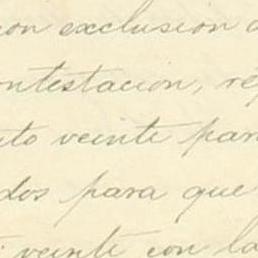 con exclusion d
ontestacion, ré
uto veinte par
dos para que
veinte con la